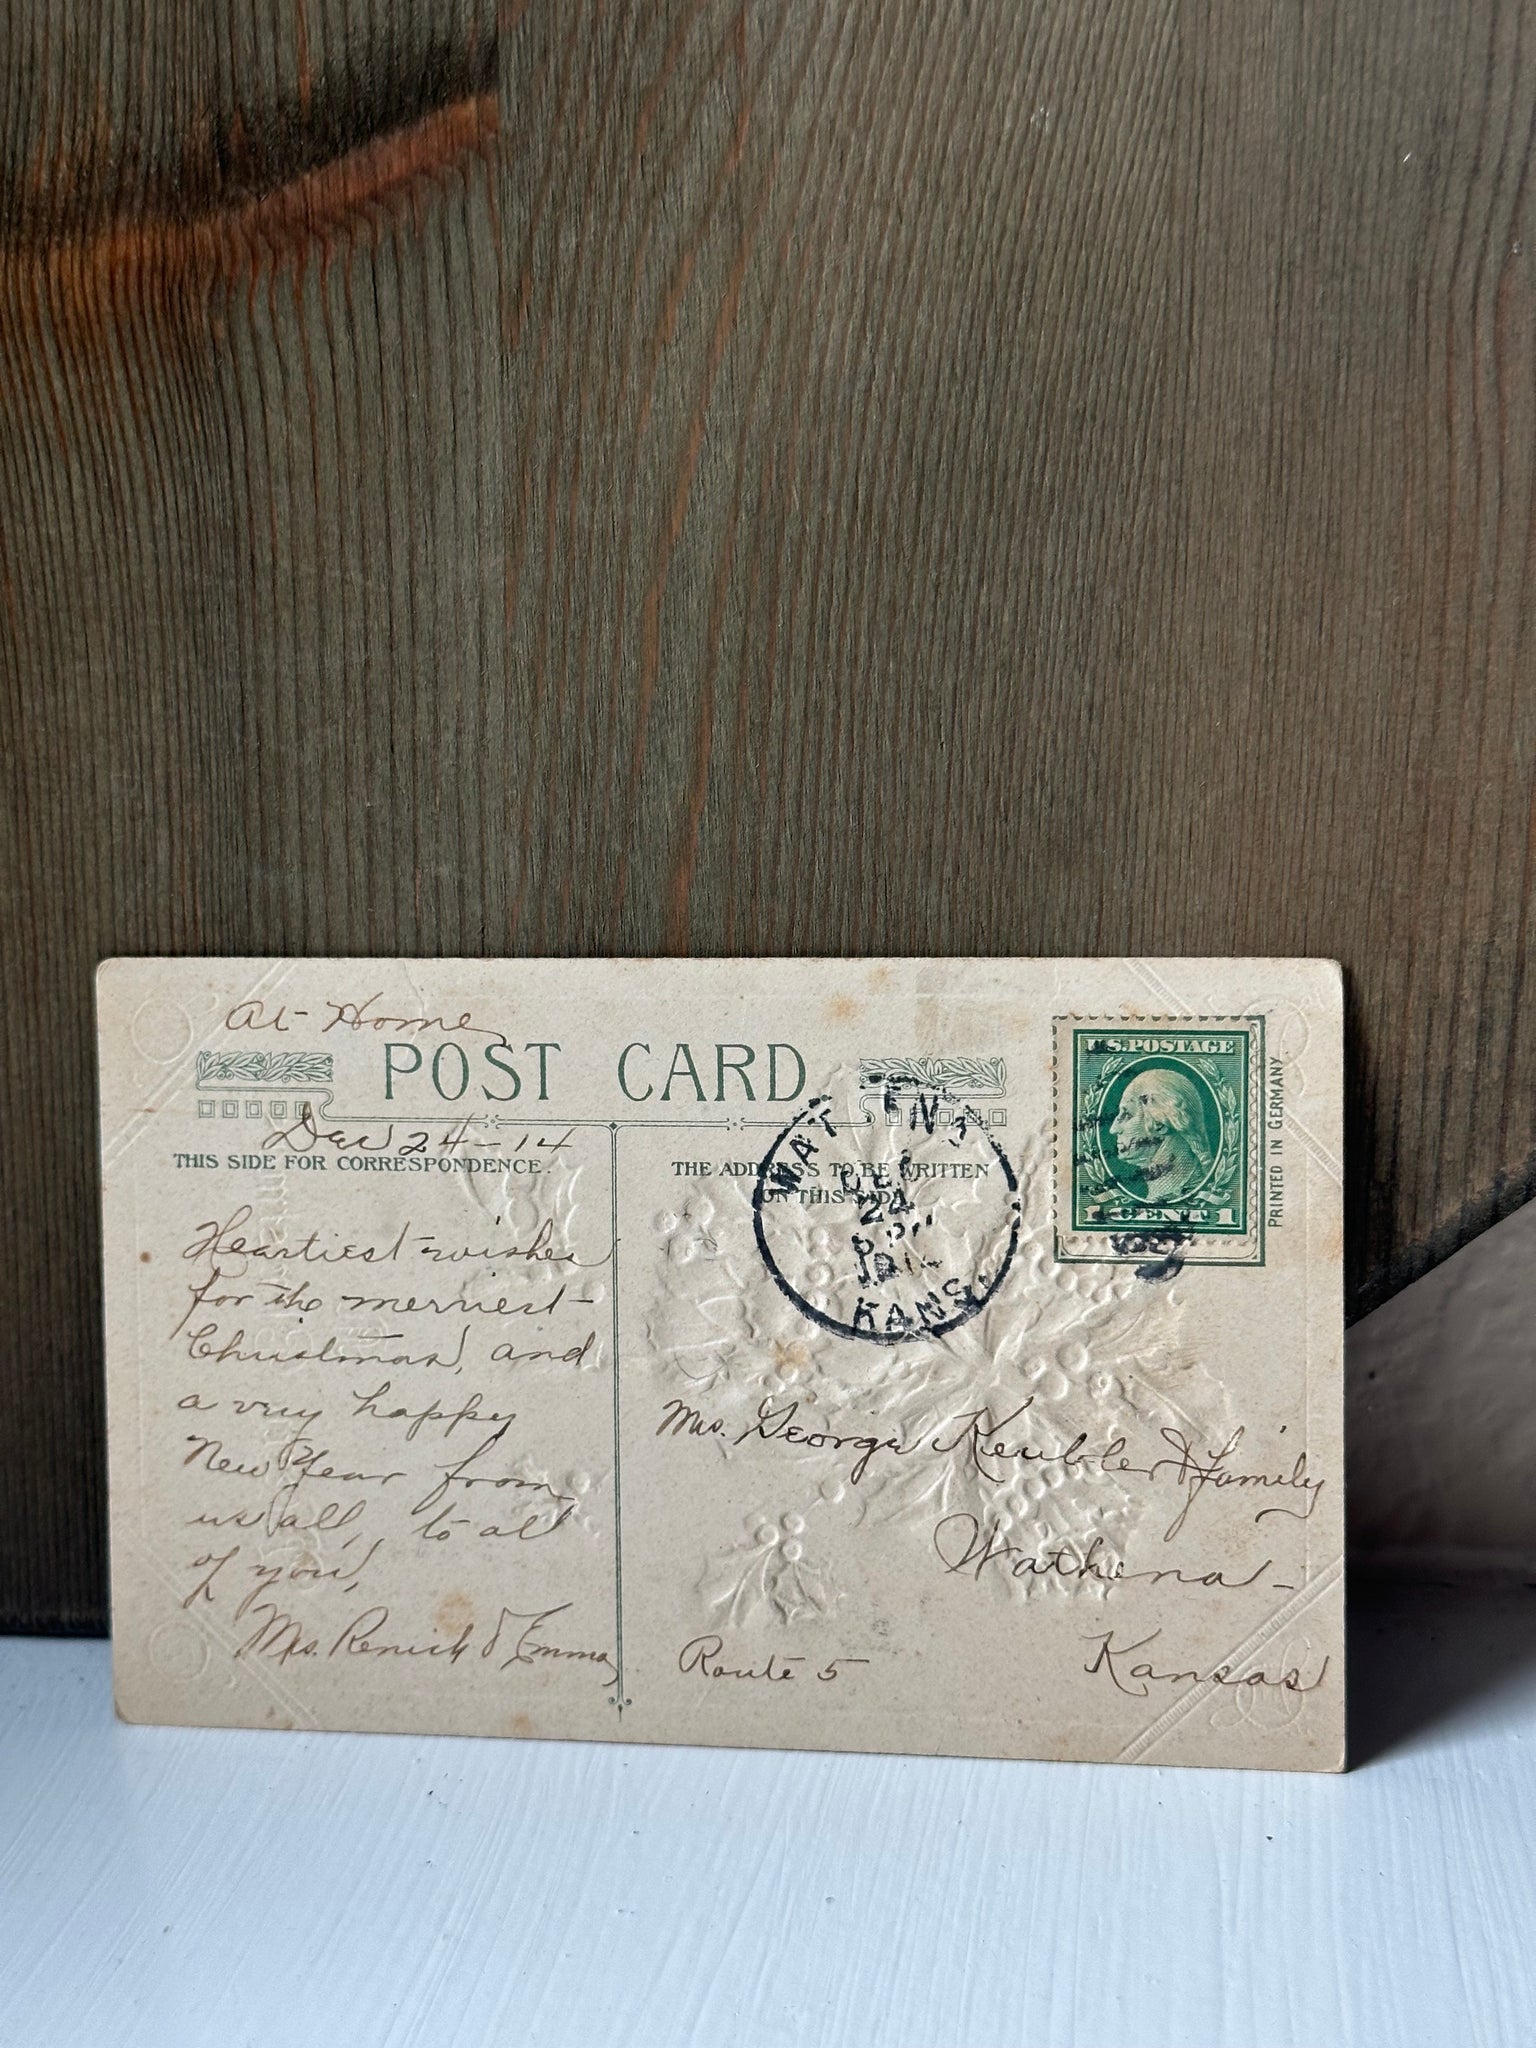 At Home
POST CARD
Dec 24-14
THIS SIDE FOR CORRESPONDENCE.
Heartiest wishes
for the merriest
Christmas, and
a very happy
New Year from
us all, to all
of you,
Mrs. Renick & Emma
THE ADDRESS TO BE WRITTEN
ON THIS SIDE
WAT EN
DEC
24
KANS.
U.S. POSTAGE
1 CENT 1
PRINTED IN GERMANY
Mrs. George Keubler & family
Wathena-
Route 5
Kansas